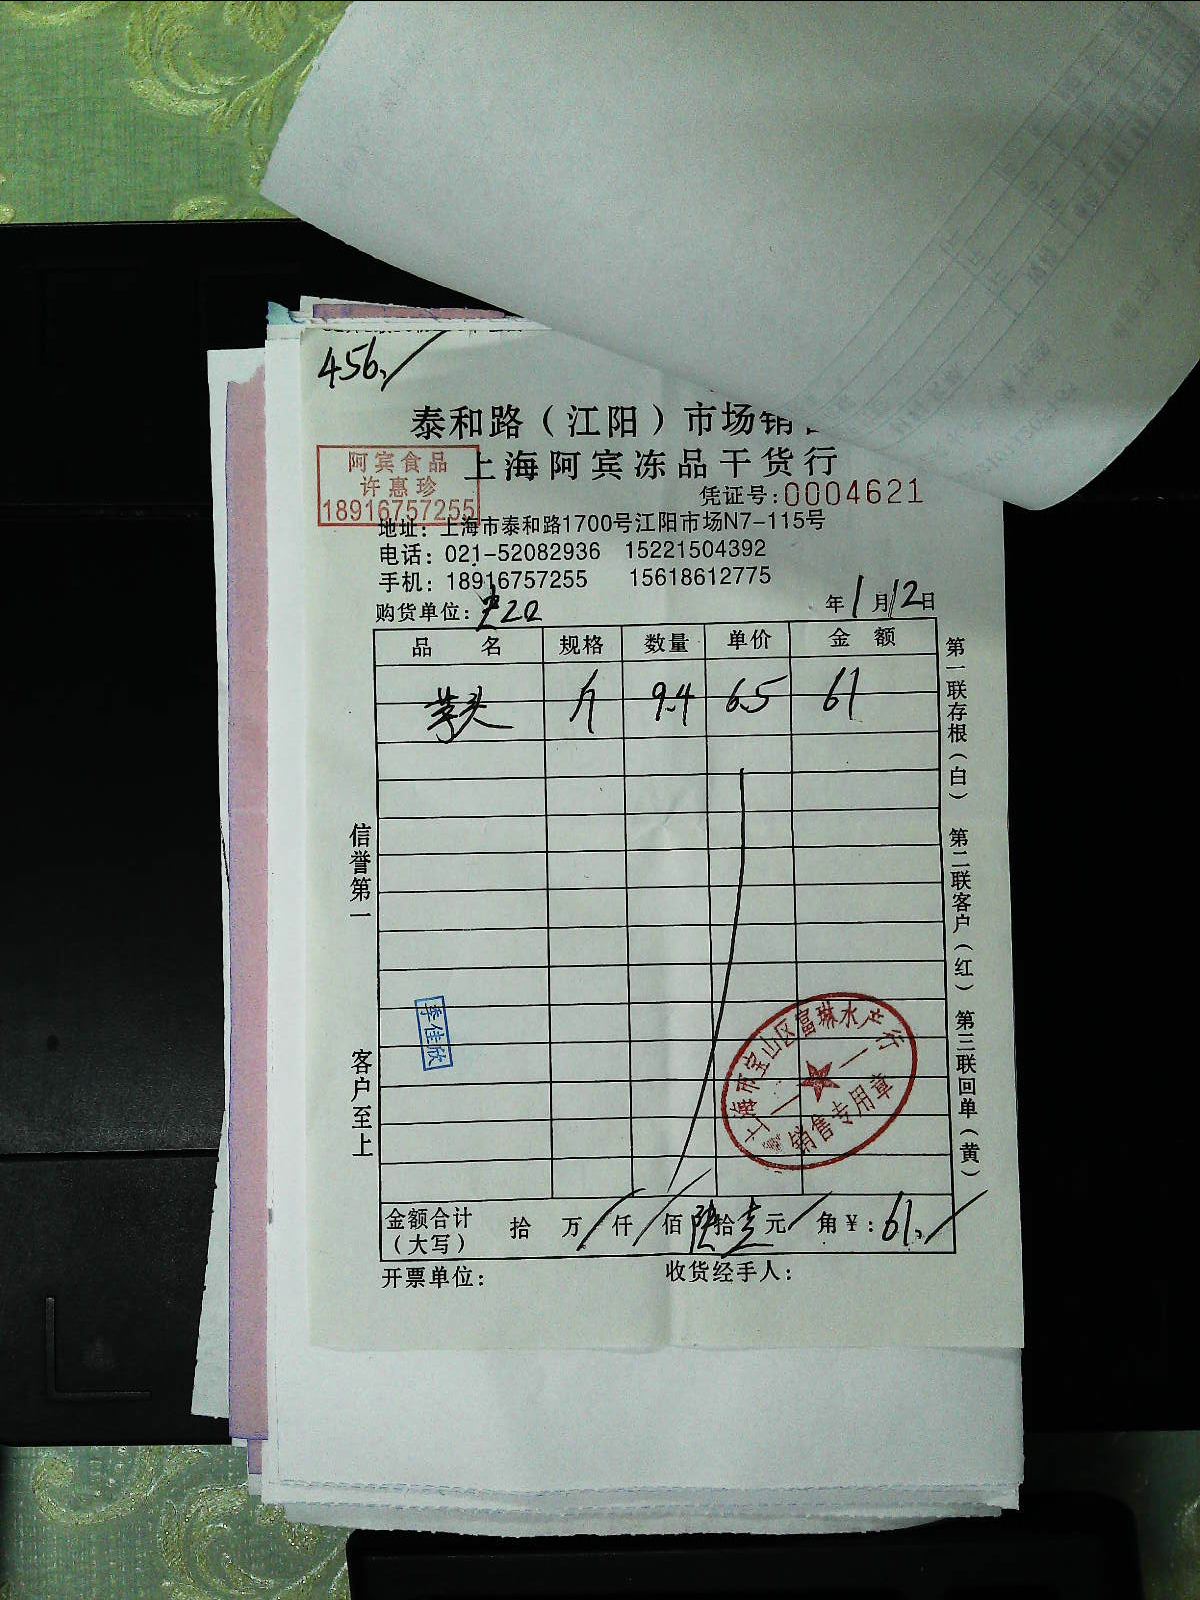 456.
泰和路（江阳）市场销
上海阿宾冻品干货行
阿宾食品
许惠珍
18916757255
凭证号:0004621
地址：上海市泰和路1700号江阳市场N7-115号
电话：021-52082936 15221504392
手机：18916757255 15618612775
购货单位:
年1月12日
品 名 规格 数量 单价 金 额
芋头 斤 9.4 6.5 61
信誉第一 客户至上
第一联存根（白） 第二联客户（红） 第三联回单（黄）
李佳欣
上海市宝山区富琳水产行
销售专用章
金额合计（大写） 拾 万 仟 佰 陆拾壹元 角 ￥:61.
开票单位： 收货经手人：